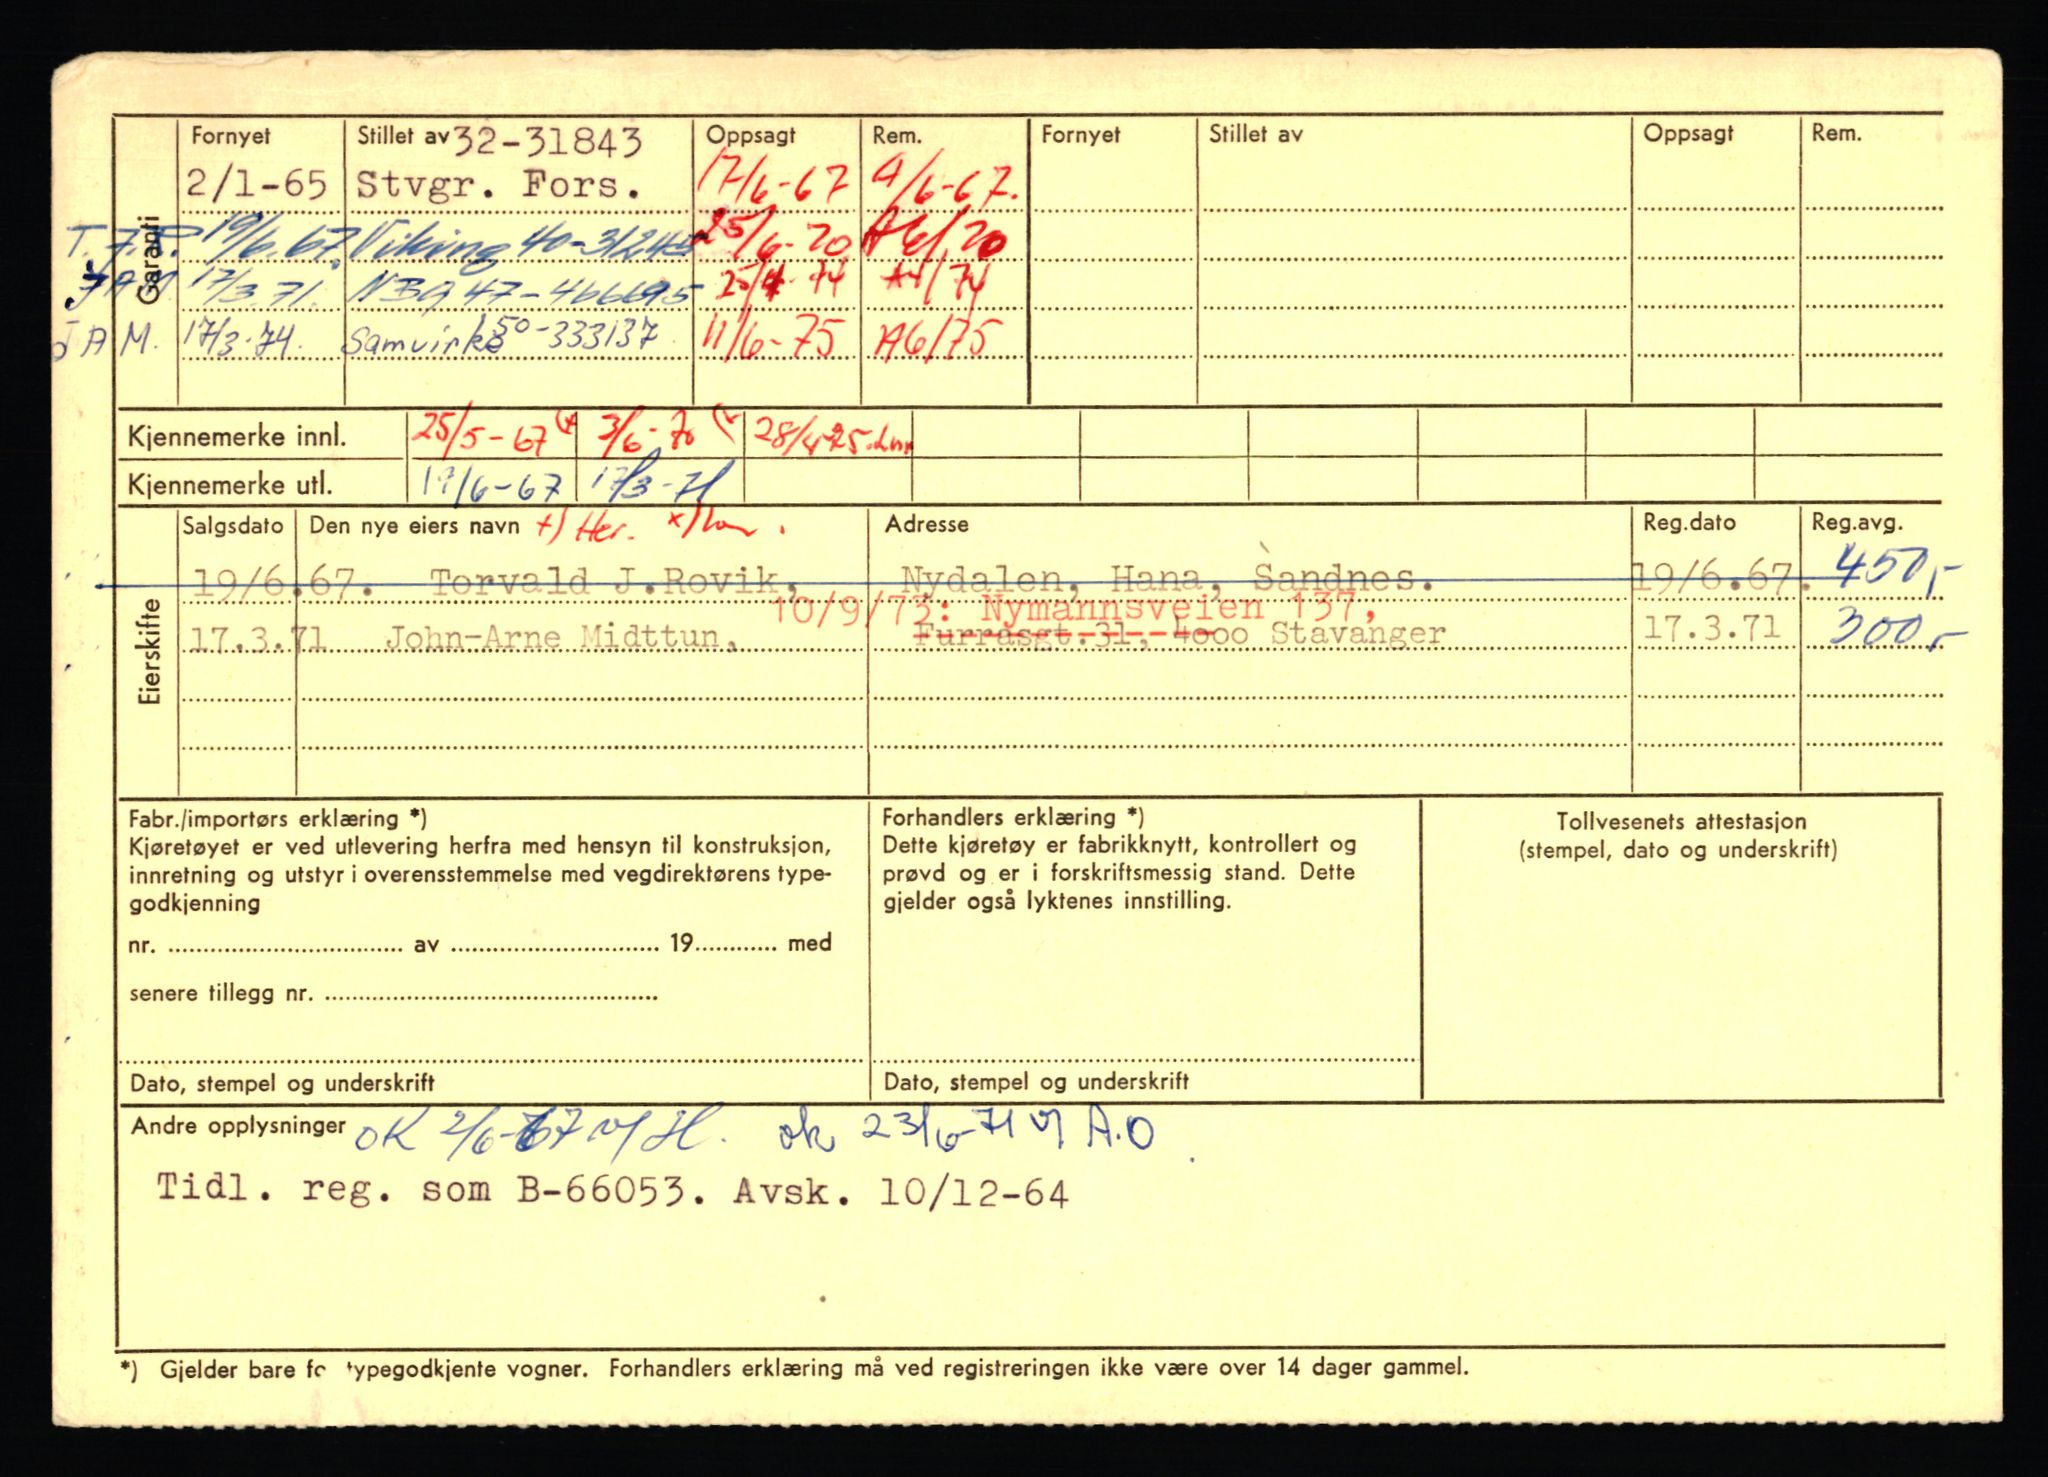 Garanti
Fornyet Stillet av 32-31843 Oppsagt Rem. Fornyet Stillet av Oppsagt Rem.
2/1-65 Stvgr. Fors. 17/6-67 9/6-67.
19/6.67. Viking 40-31245 25/6-70 A6/70
JAM 17/3.71. 47-466695 25/4-74 A4/74
JAM. 17/3-74. Samvirke 50-333137 11/6-75 A6/75
Kjennemerke innl. 25/5-67 3/6-70 28/4-75
Kjennemerke utl. 19/6-67 17/3-71
Eierskifte
Salgsdato Den nye eiers navn +) Her. x) Adresse Reg.dato Reg.avg.
19/6.67. Torvald J.Rovik, Nydalen, Hana, Sandnes. 19/6.67. 450,-
10/9/73: Nymannsveien 137,
17.3.71 John-Arne Midttun, Furrasgt.31, 4000 Stavanger 17.3.71 300,-
Fabr./importørs erklæring *)
Kjøretøyet er ved utlevering herfra med hensyn til konstruksjon,
innretning og utstyr i overensstemmelse med vegdirektørens type-
godkjenning
nr. ................ av ................ 19............ med
senere tillegg nr. ................
Dato, stempel og underskrift
Forhandlers erklæring *)
Dette kjøretøy er fabrikknytt, kontrollert og
prøvd og er i forskriftsmessig stand. Dette
gjelder også lyktenes innstilling.
Dato, stempel og underskrift
Tollvesenets attestasjon
(stempel, dato og underskrift)
Andre opplysninger OK 2/6-67 v/ H. ok 23/6-71 v/ A.O
Tidl. reg. som B-66053. Avsk. 10/12-64
*) Gjelder bare fo typegodkjente vogner. Forhandlers erklæring må ved registreringen ikke være over 14 dager gammel.